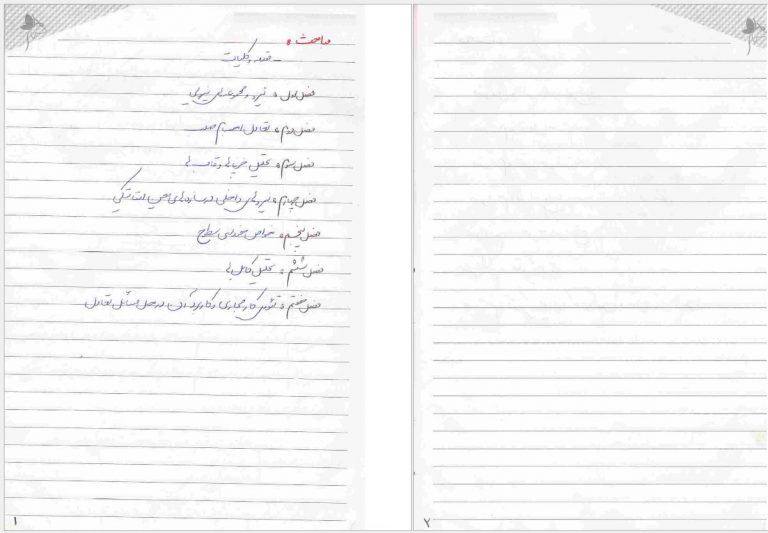 مباحث :
- مقدمه و کلیات
فصل اول : نیرو و گروه‌های نیرویی
فصل دوم : تعادل اجسام صلب
فصل سوم : تحلیل خرپاها و قاب‌ها
فصل چهارم : نیروهای داخلی در سازه‌های معین استاتیکی
فصل پنجم : خواص هندسی سطوح
فصل ششم : تحلیل کابل‌ها
فصل هفتم : تئوری کار مجازی و کاربرد آن در حل مسائل تعادل
۱
۲